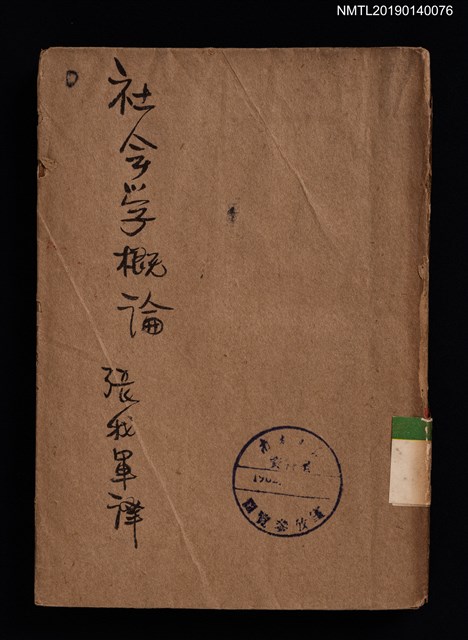 NMTL20190140076
社会学概論
張我軍譯